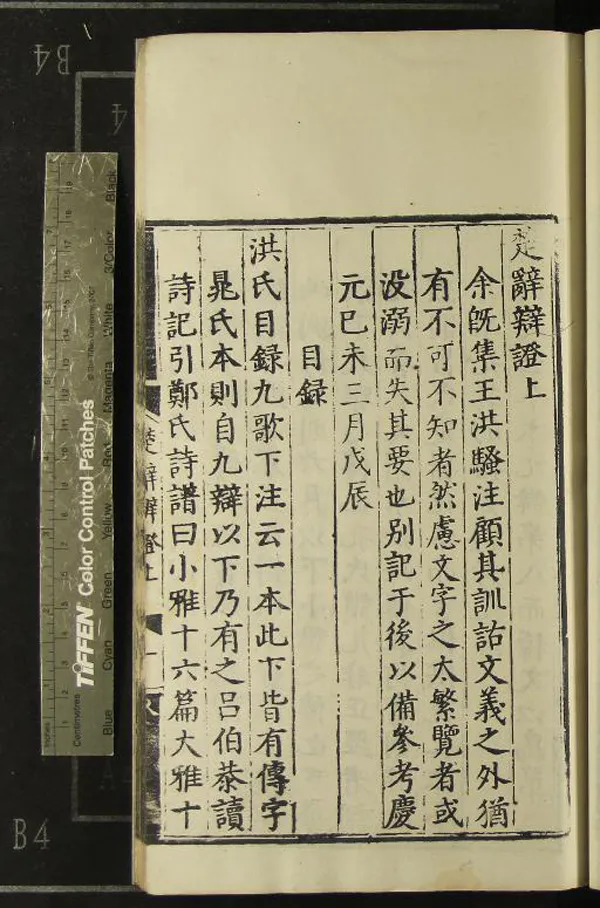 楚辭辯證上
余既集王洪騷注顧其訓詁文義之外猶
有不可不知者然慮文字之太繁覽者或
没溺而失其要也别記于後以備參考慶
元己未三月戊辰
目録
洪氏目録九歌下注云一本此下皆有傳字
晁氏本則自九辯以下乃有之吕伯恭讀
詩記引鄭氏詩譜曰小雅十六篇大雅十
楚辭辯證上
TIFFEN Color Control Patches
© The Tiffen Company, 2007
Inches
Centimetres
Blue
Cyan
Green
Yellow
Red
Magenta
White
3/Color
Black
B4
B4